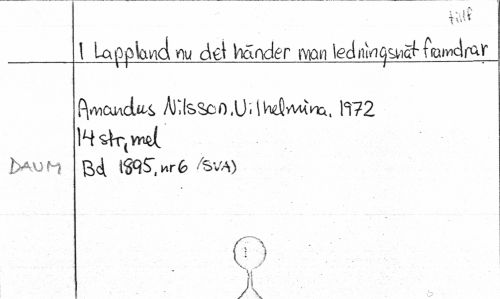 tillf
I Lappland nu det händer man ledningsnät framdrar
Amandus Nilsson. Vilhelmina. 1972
14 str, mel
DAUM Bd 1895, nr 6 (SVA)